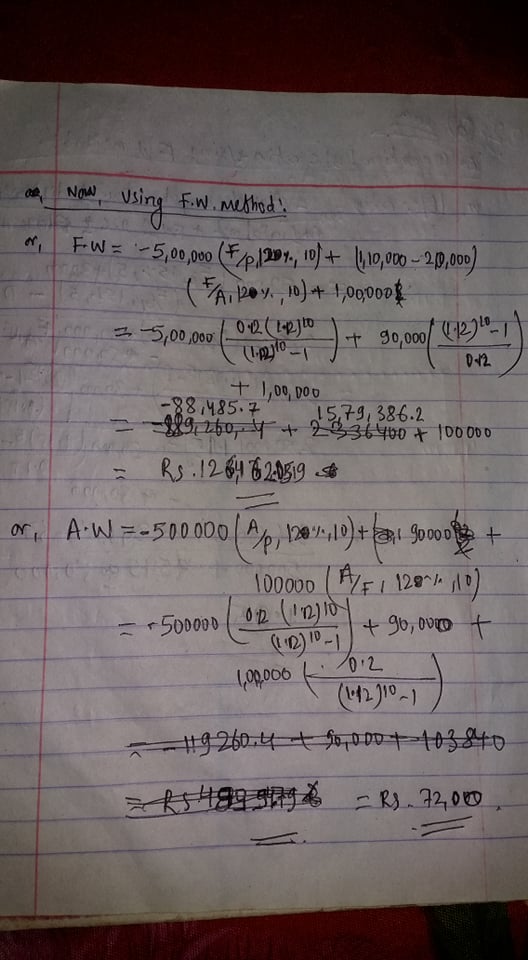 Now, Using F.W. method:
or, F.W = -5,00,000 (F/P, 12%, 10) + (1,10,000 - 20,000)
(F/A, 12%, 10) + 1,00,000
= -5,00,000 (0.12 (1.12)^10 / (1.12)^10 - 1) + 90,000 ((1.12)^10 - 1 / 0.12)
+ 1,00,000
-88,485.7 15,79,386.2
= + 2336400 + 100000
= Rs.
or, A.W = -500000 (A/P, 12%, 10) + 90000 +
100000 (A/F, 12%, 10)
= -500000 (0.12 (1.12)^10 / (1.12)^10 - 1) + 90,000 +
1,00,000 (0.2 / (1.12)^10 - 1)
= -119260.4 + 90,000 + 103840
= Rs = Rs. 72,000.